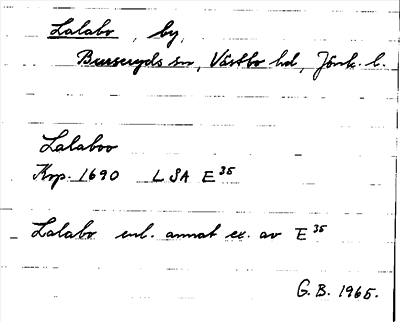 Lalabo, by,
Burseryds sn, Västbo hd, Jönk. l.
Lalaboo
Krp. 1690 LSA E³⁵
Lalabo enl. annat ex. av E³⁵
G. B. 1965.